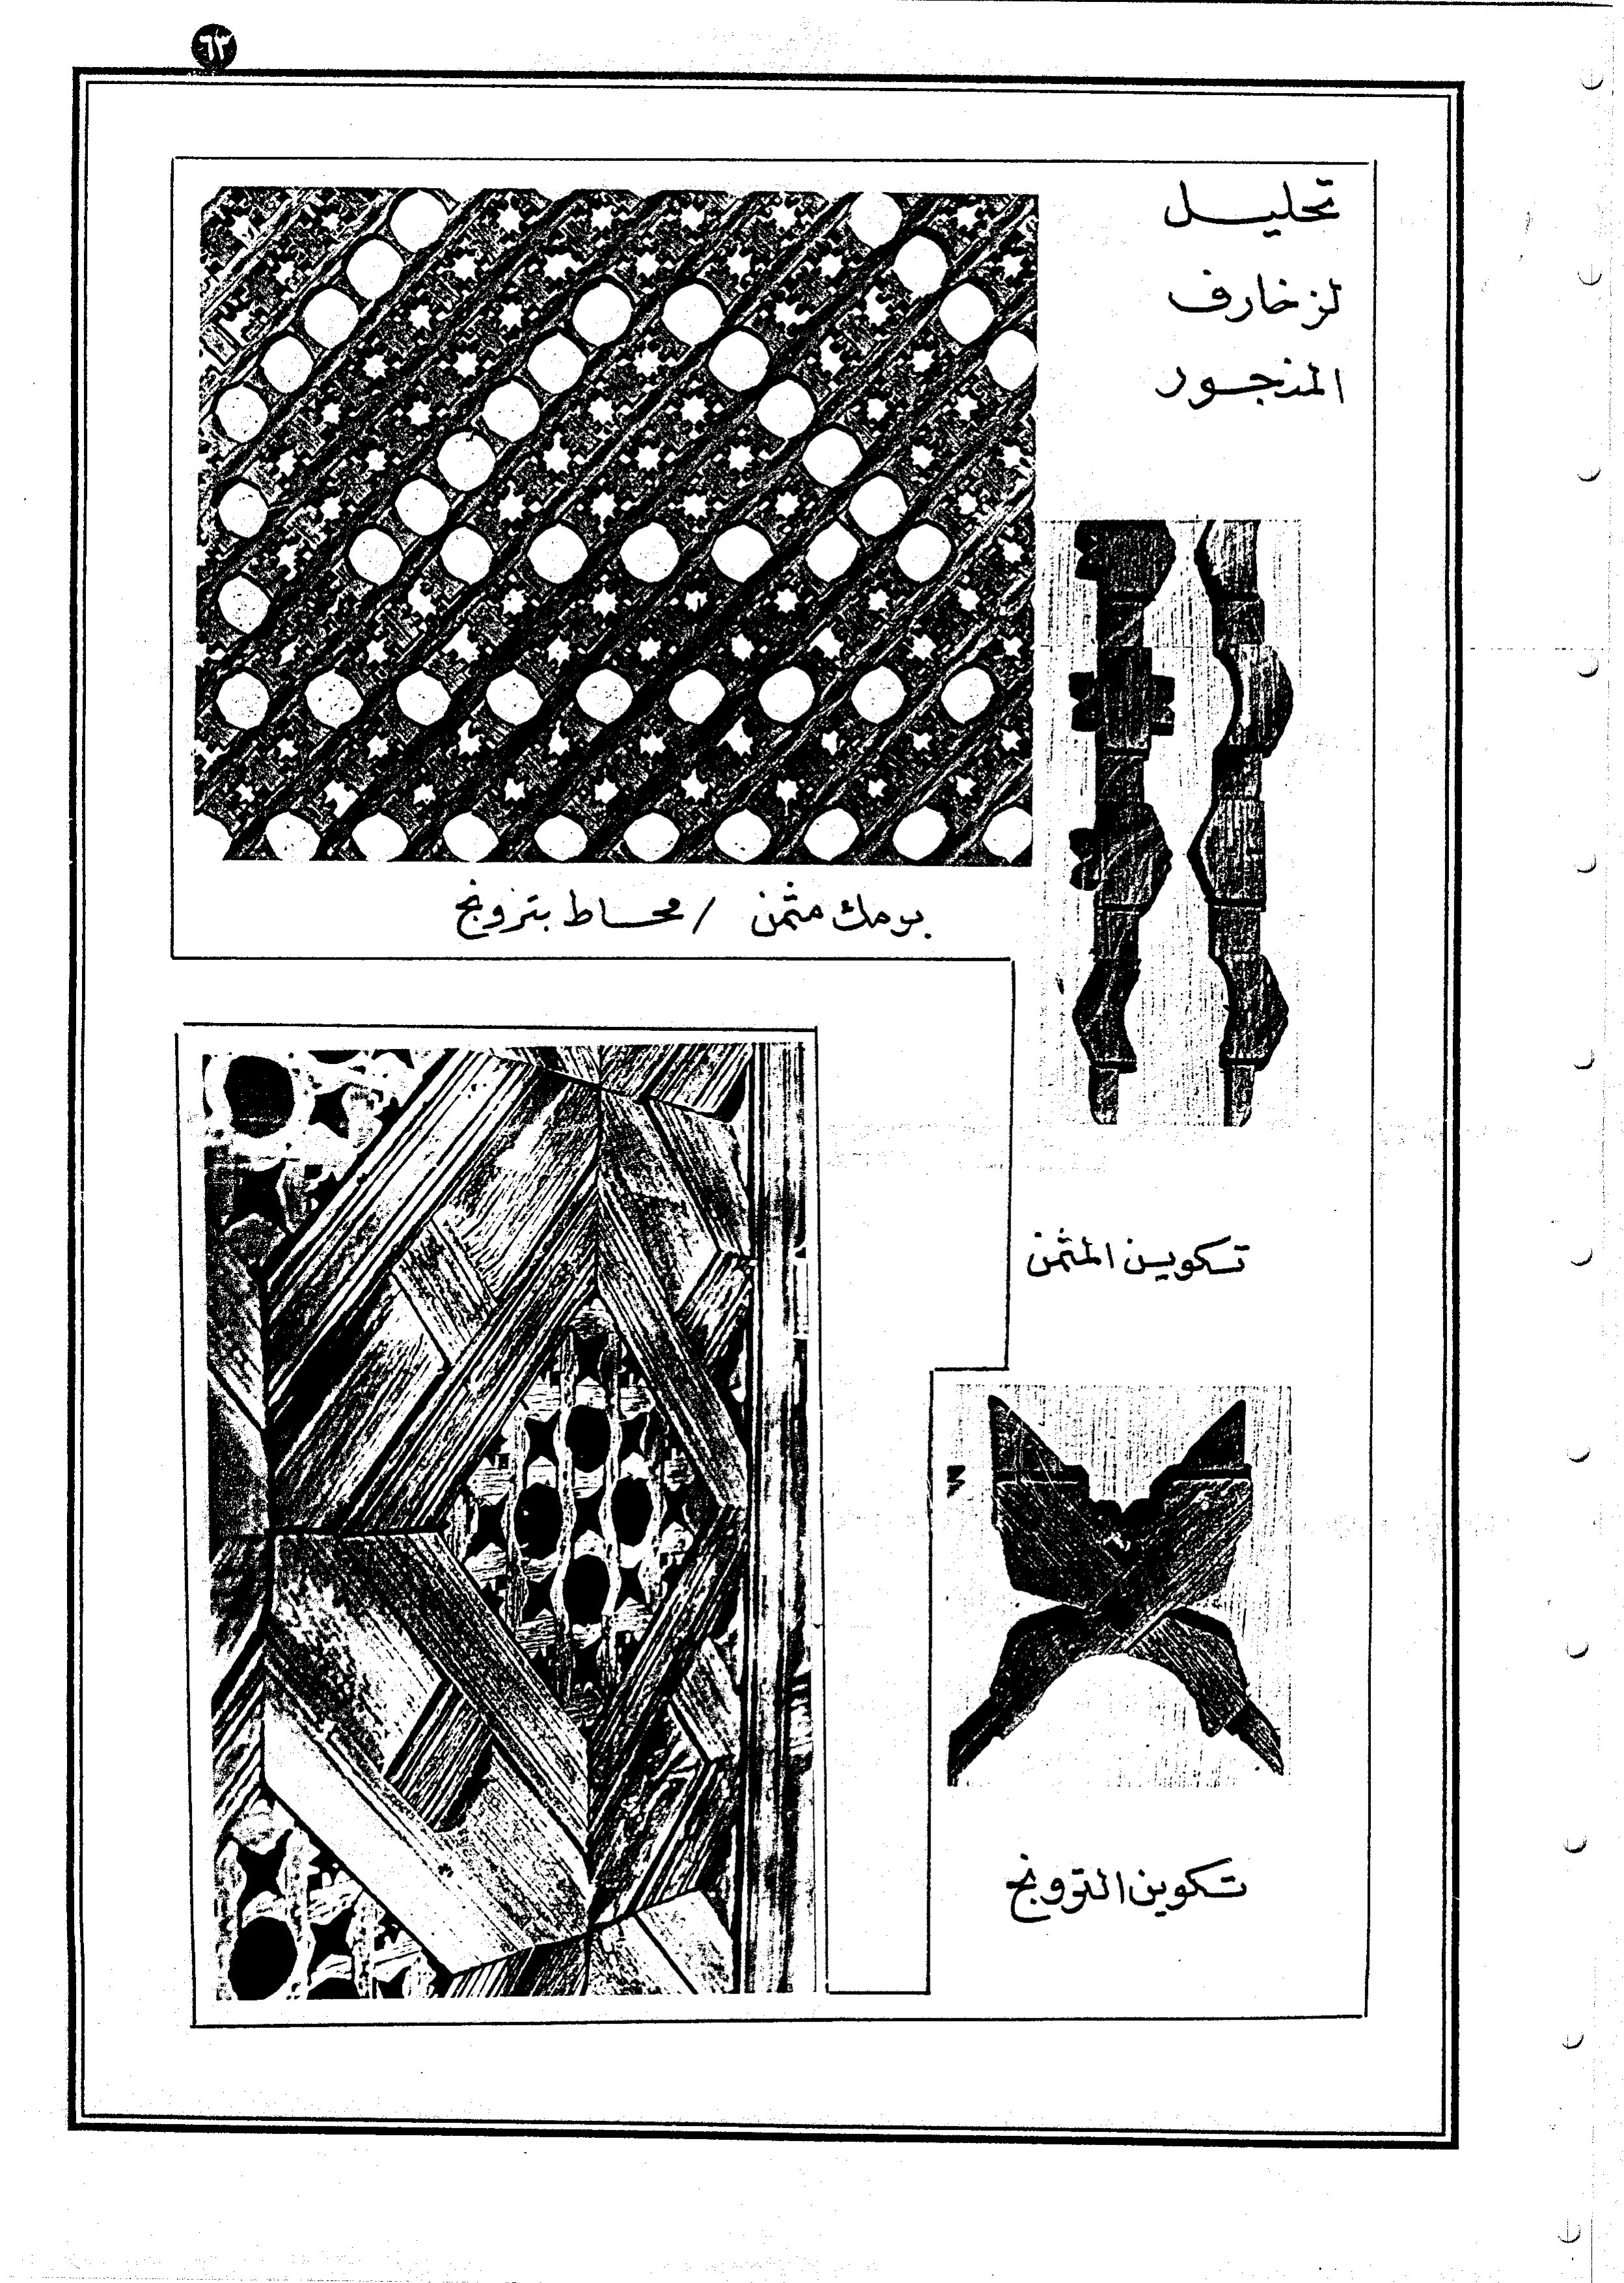 ٦٣
تحليل
لزخارف
المنجور
بومك مثمن / محاط بترونج
تكوين المثمن
تكوين الترونج